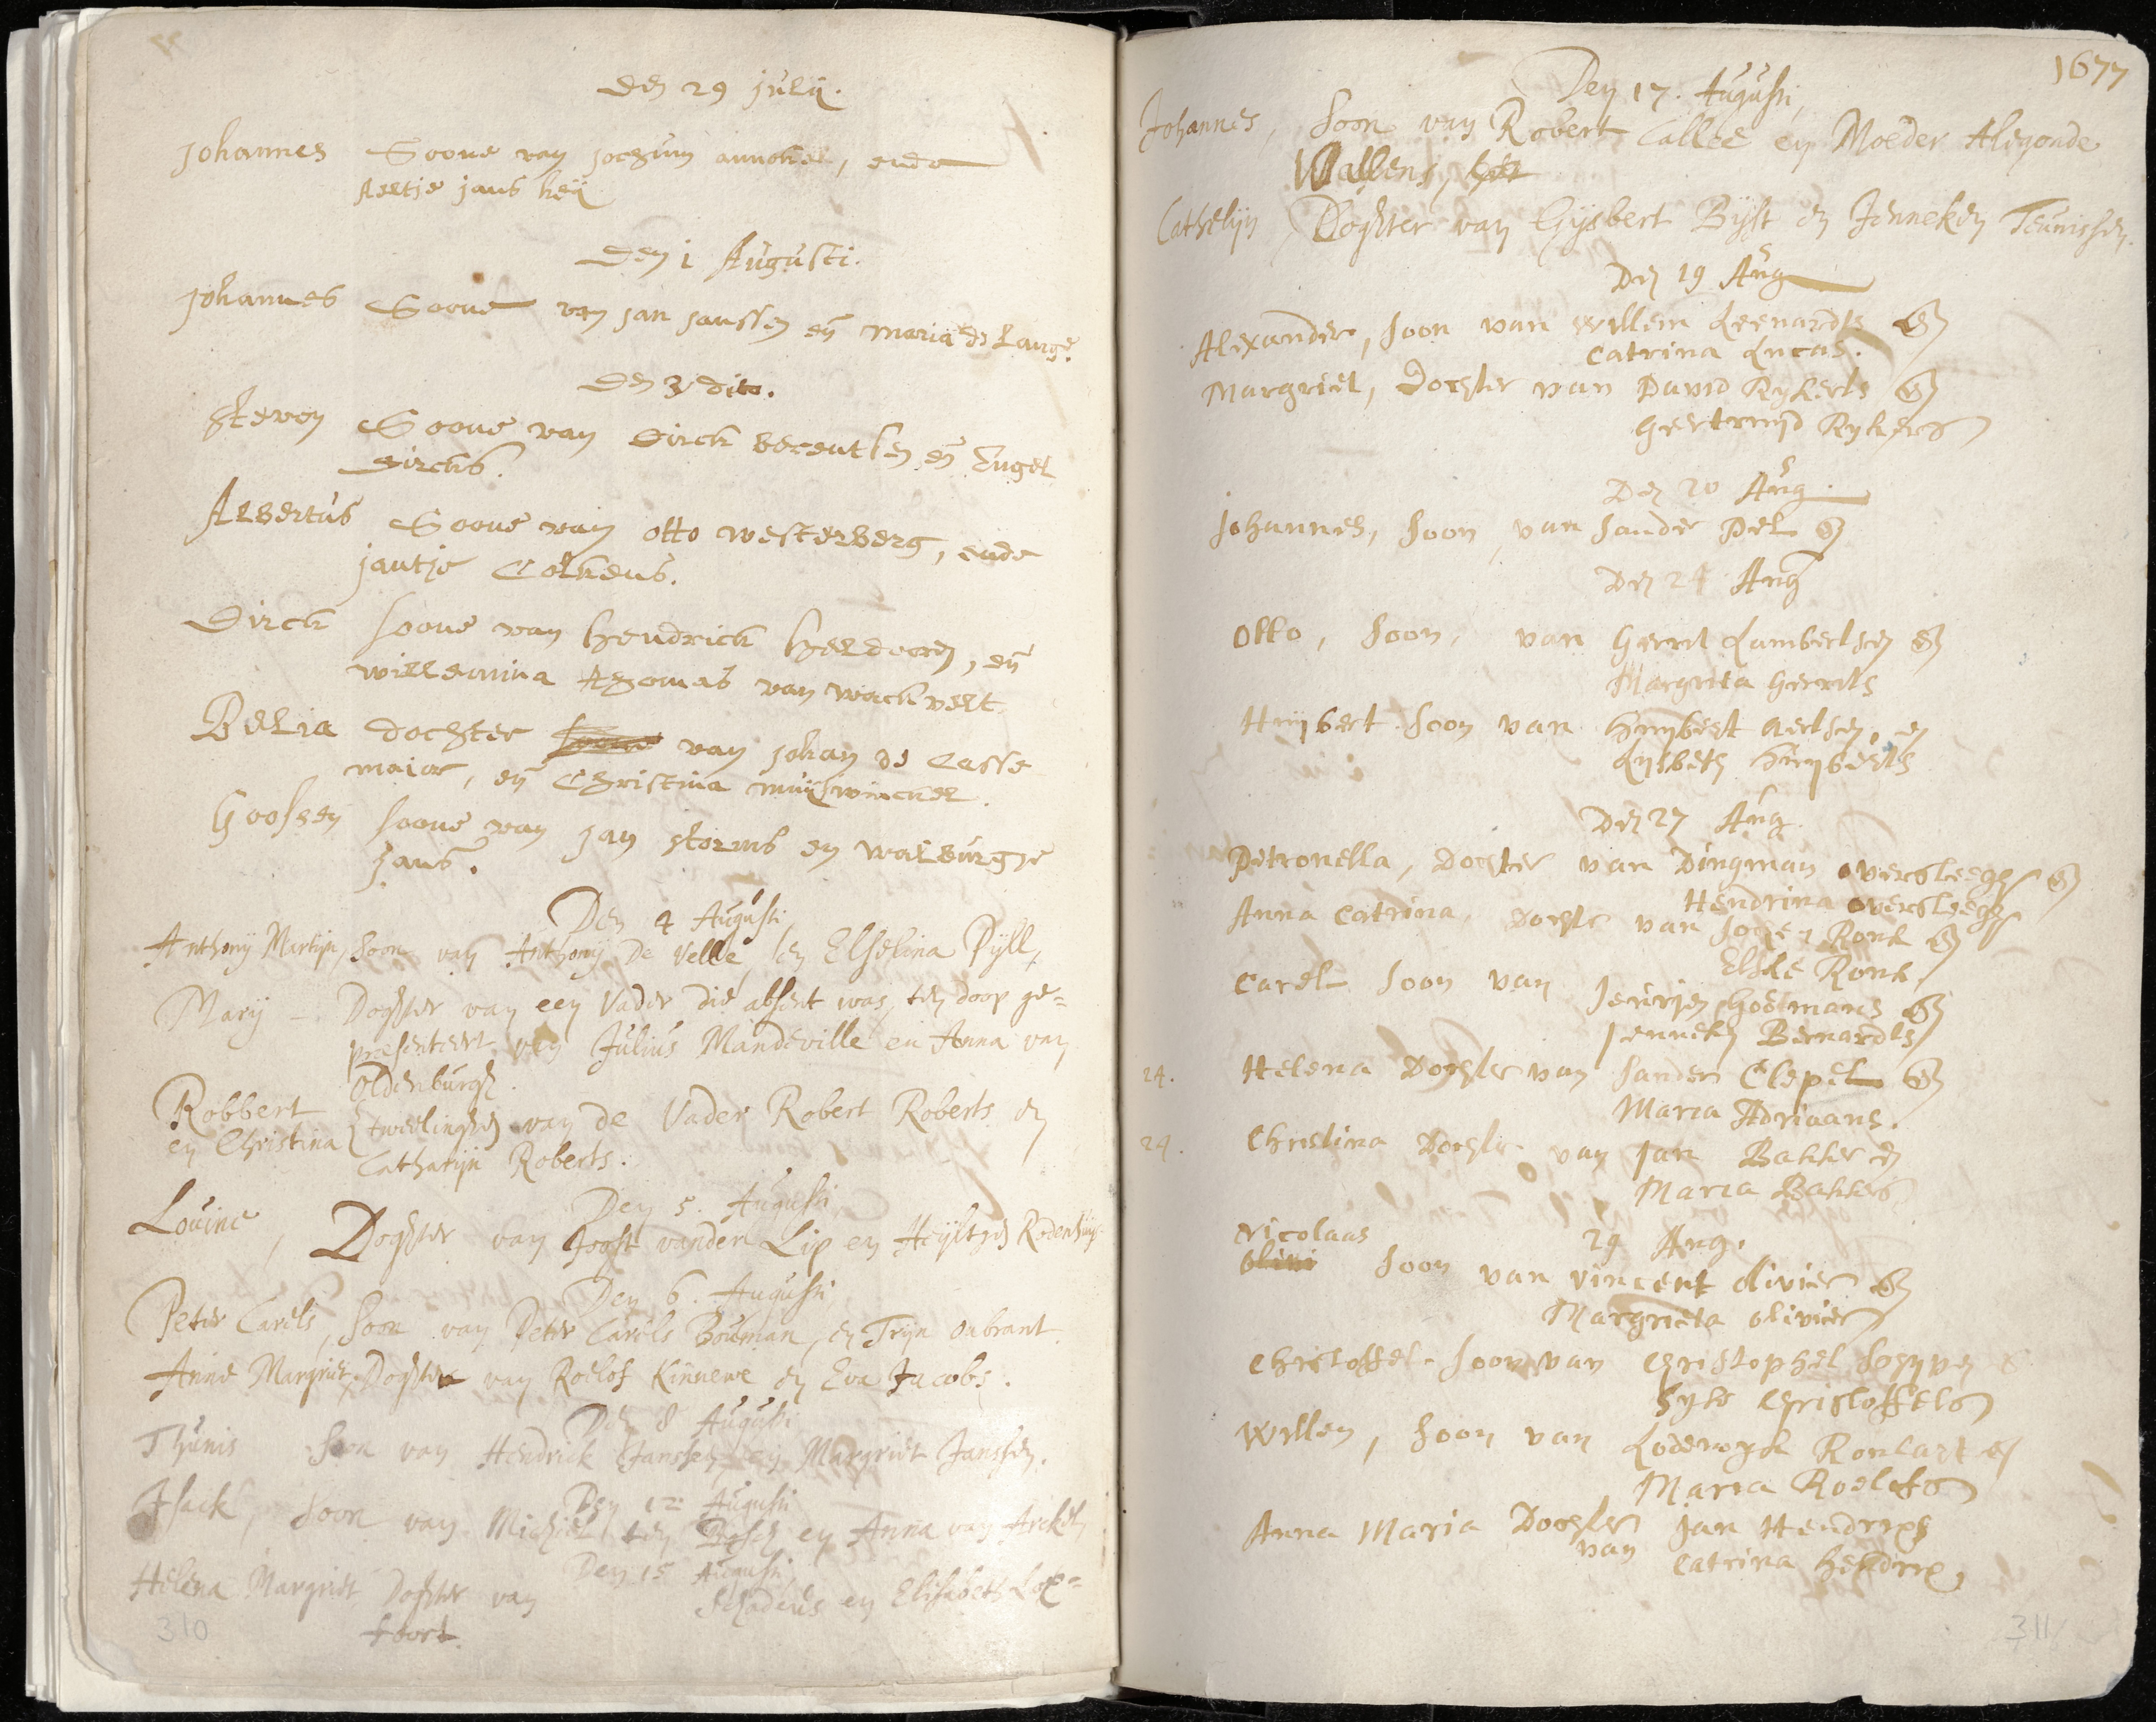 den 29 julij.
Johannes Soone van jochum annoke, ende
Aeltje jans keij
den 1 Augusti.
Johannes Soone van jan janssen en maria de Lange.
den 3 dito.
Steven Soone van dirck berentsen en Engel
dircks.
Albertus Soone van otto westerberg, ende
jantje Colkens.
Dirck soone van hendrick heldoorn, en
willemina thomas van wachvelt.
Belia dochter van johan de Casse
maior, en Christina muijswinckel.
Goossen soone van jan storms en walburgje
jans.
Den 4 Augusti,
Anthonij Martijn, Soon van Anthonij De Velle, en Elselina Pijll,
Marij – Dochter van een Vader die absent was, ten doop ge=
presenteert van Julius Mandeville en Anna van
Oldenburgh.
Robbert
en Christina tweelinghen van de Vader Robert Roberts en
Catharijn Roberts.
Den 5. Augusti,
Lovine, Dochter van Joost vander Lip en Heijltjen Rodenhuijs
Den 6. Augusti,
Peter Carels, Soon van Peter Carels Bouman, en Trijn Onbrant.
Anne Margriet, Dochter van Roelof Kinnewe en Eva Jacobs.
Den 8 Augusti
Thunis Soon van Hendrick Janssen, en Margriet Janssen.
Den 12 Augusti
Isack, Soon van Michiel ten Bosch en Anna van Arckel,
Den 15 Augusti,
Helena Margriet Dochter van Schadeus en Elisabeth Lox=
foort.
310
1677
Den 17. Augusti,
Johannes, Soon van Robert Callee en Moeder Aligonde
Wallens,
Cathelijn, Dochter van Gijsbert Bijst en Jenneken Teunissen.
Den 19 Aug
Alexander, soon van Willem Leenardts en
Catrina Lucas.
Margriet, dochter van David Rykerts en
Geertruijd Rykers
Den 20 Aug
Johannes, Soon van Sander Pel en
Den 24 Aug
Otto, Soon, van Gerrit Lambertsen en
Margrita Gerrits
Huijbert Soon van Huijbert Aertsen, en
Lysbeth Huijberts
Den 27 Aug.
Petronella, Dochter van Dingman oversteegh en
Hendrina oversteegh
Anna Catrina, Dochter van Ronk en
Elske Ronk
Carel Soon van Jeurjen Gootmans en
Jenneke Bernardts
24. Helena Dochter van Sander Clepel en
Maria Adriaans.
24. Christina Dochter van Jan Bakker en
Maria Bakkers
29 Aug.
Nicolaas
Soon van Vincent olivier en
Margrieta olivier
Christoffel Soon van Christophel
Syke Christoffels
Willem, Soon van Lodewyk Ronlart en
Maria Roelofs
Anna Maria Dochter van Jan Hendrixs
Catrina Hendrix,
311